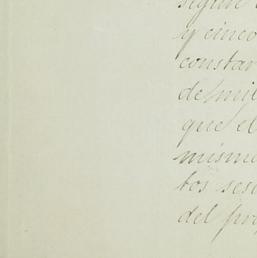 segun
y cinco
constar
de mil
que el
mismo
tos ses
del pro